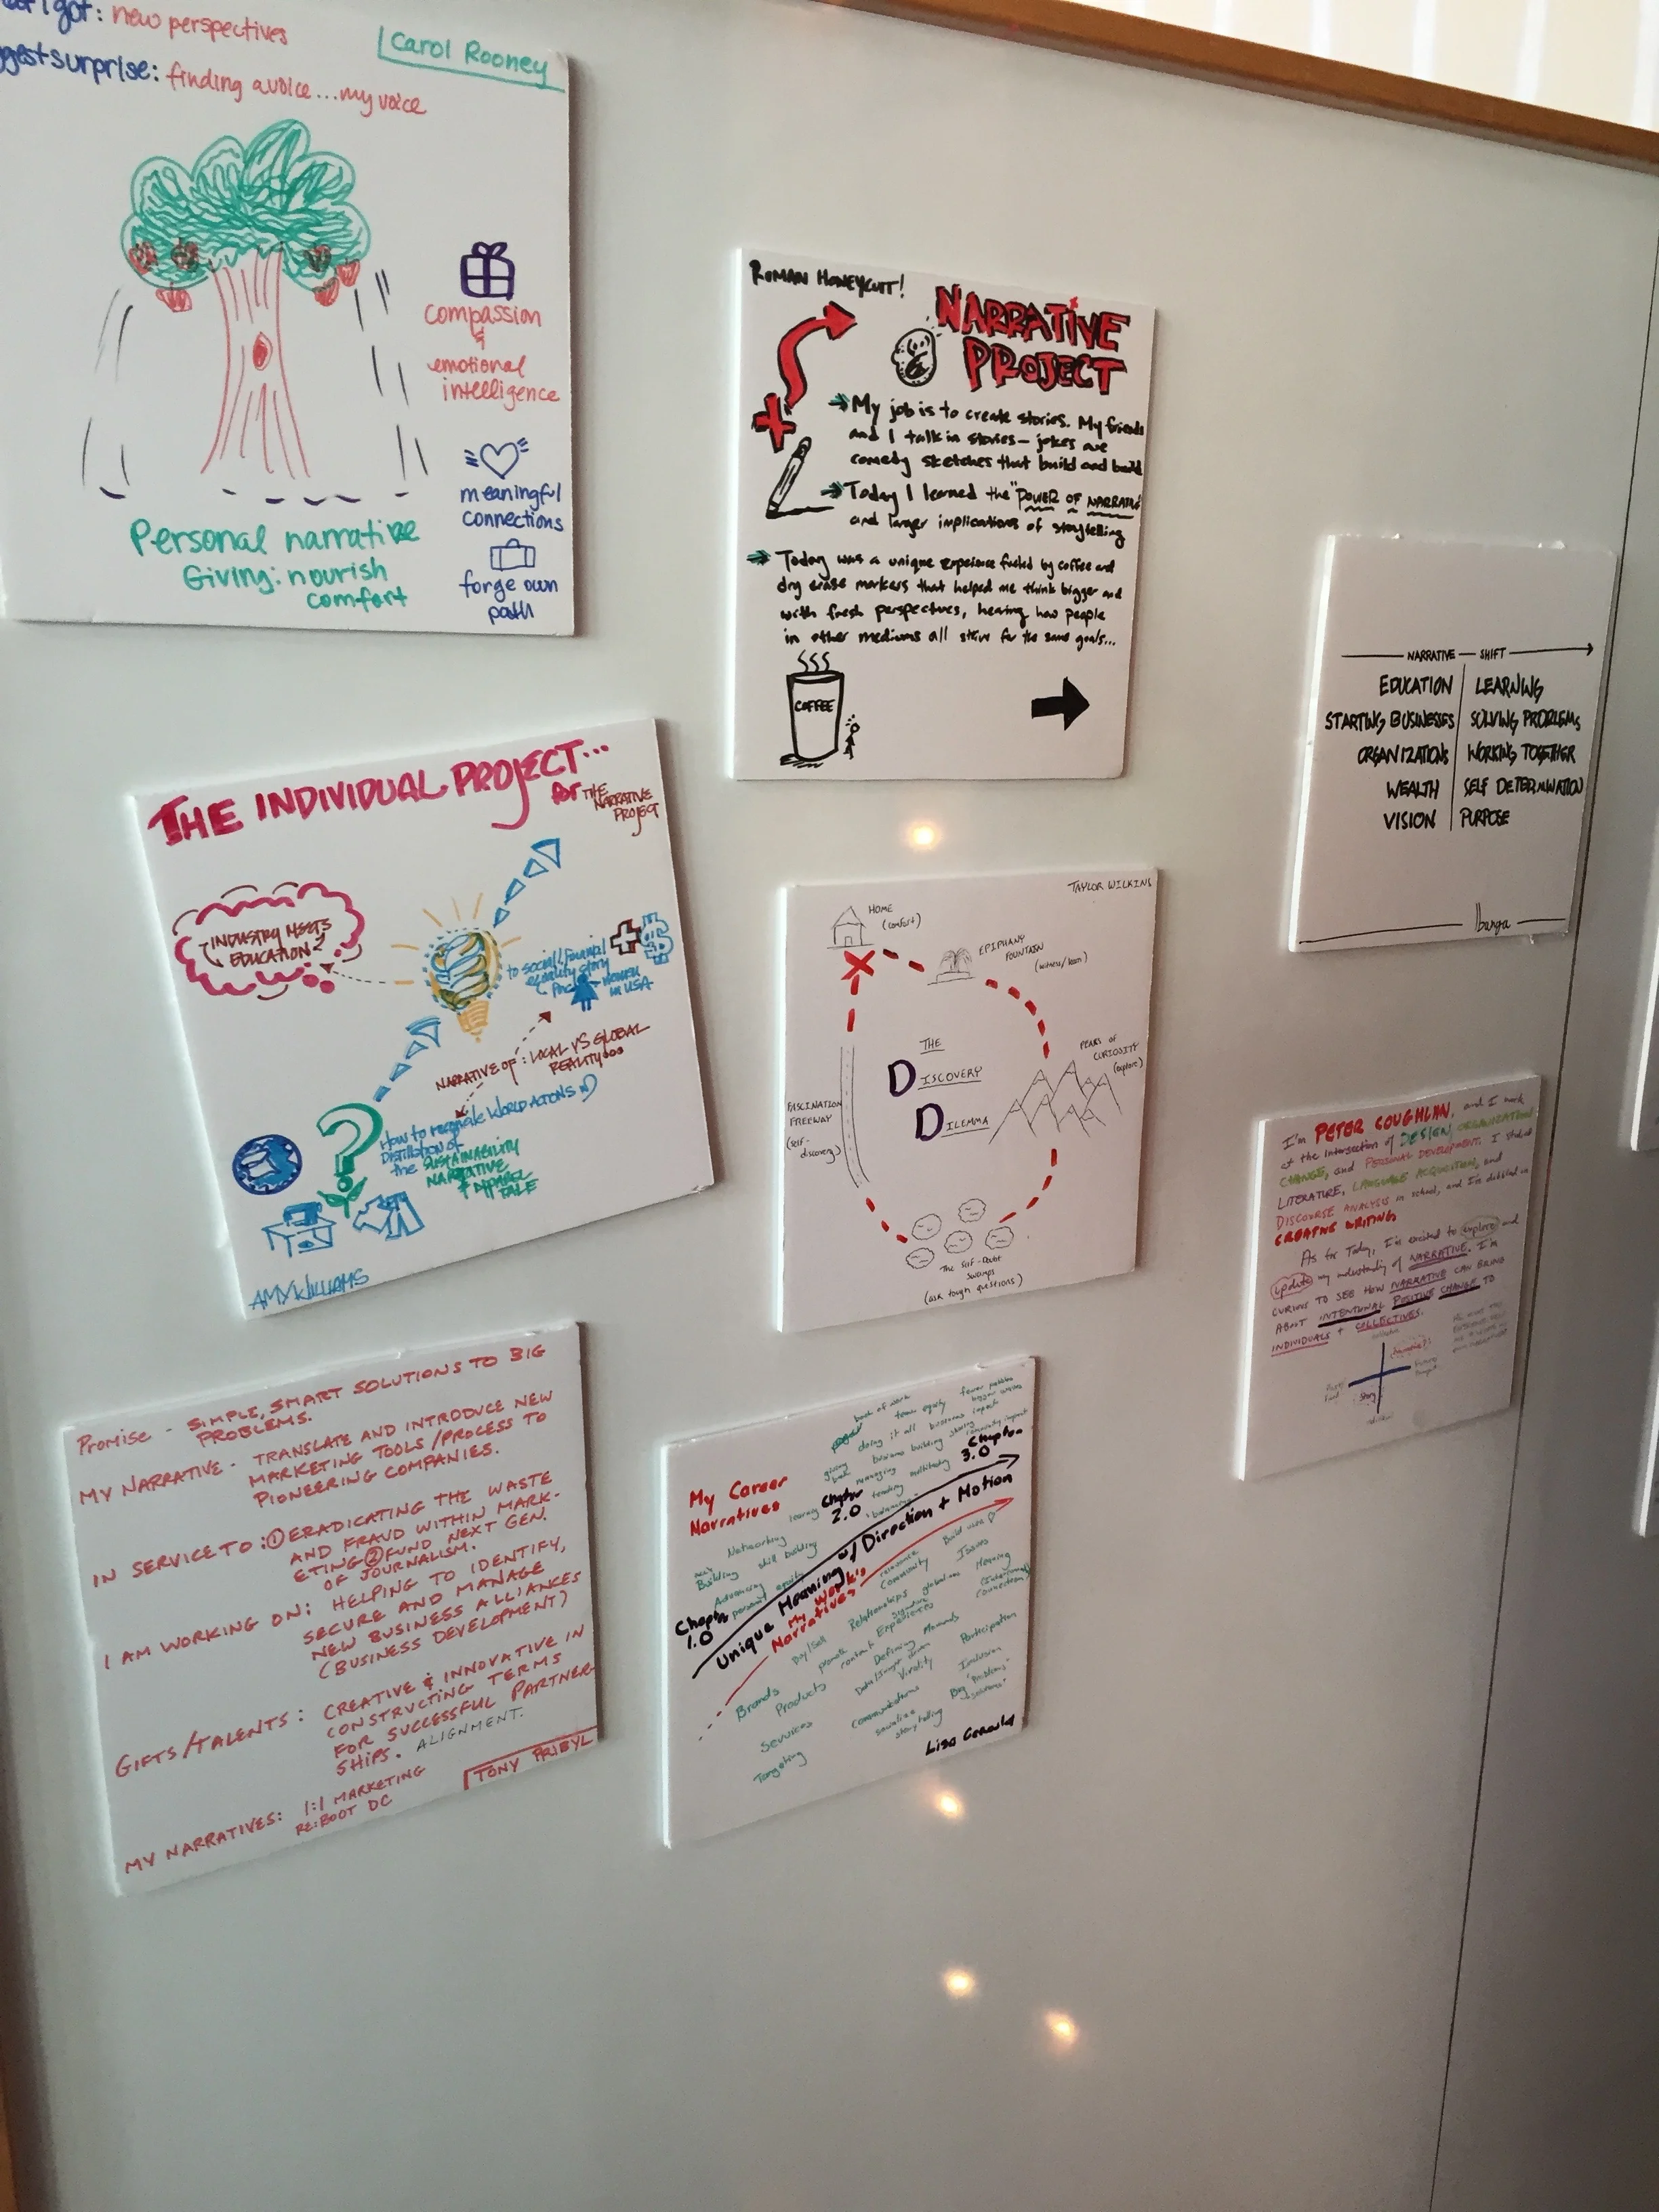 I got: new perspectives
ggest surprise: finding a voice...my voice
Carol Rooney
compassion
&
emotional
intelligence
meaningful
connections
forge own
path
Personal narrative
Giving: nourish
comfort
ROMAN HONEYCUTT!
NARRATIVE
PROJECT
My job is to create stories. My friends
and I talk in stories — jokes are
comedy sketches that build and build
Today I learned the "POWER OF NARRATIVE
and larger implications of storytelling
Today was a unique experience fueled by coffee and
dry erase markers that helped me think bigger and
with fresh perspectives, hearing how people
in other mediums all strive for the same goals...
COFFEE
NARRATIVE — SHIFT
EDUCATION | LEARNING
STARTING BUSINESSES | SOLVING PROBLEMS
ORGANIZATIONS | WORKING TOGETHER
WEALTH | SELF DETERMINATION
VISION | PURPOSE
Ibarga
THE INDIVIDUAL PROJECT...
for THE
NARRATIVE
PROJECT
INDUSTRY MEETS
EDUCATION?
to social/financial
equality story
for women
in USA
NARRATIVE OF: LOCAL VS GLOBAL
REALITY...
How to reconcile WORLD ACTIONS
Distillation of
the SUSTAINABILITY
NARRATIVE
& APPAREL
TALE
AMY WILLIAMS
TAYLOR WILKINS
HOME
(comfort)
EPIPHANY
FOUNTAIN
(witness/learn)
THE
DISCOVERY
DILEMMA
PEAKS OF
CURIOSITY
(explore)
FASCINATION
FREEWAY
(self-
discovery)
The Self-Doubt
Swamps
(ask tough questions)
I'm PETER COUGHLAN, and I work
at the intersection of DESIGN, ORGANIZATION
CHANGE, and PERSONAL DEVELOPMENT. I studied
LITERATURE, LANGUAGE ACQUISITION, and
DISCOURSE ANALYSIS in school, and I've dabbled in
CREATIVE WRITING
As for Today, I'm excited to explore and
update my understanding of NARRATIVE. I'm
CURIOUS TO SEE HOW NARRATIVE CAN BRING
ABOUT INTENTIONAL POSITIVE CHANGE TO
INDIVIDUALS + COLLECTIVES.
Story
Promise - SIMPLE, SMART SOLUTIONS TO BIG
PROBLEMS.
MY NARRATIVE - TRANSLATE AND INTRODUCE NEW
MARKETING TOOLS/PROCESS TO
PIONEERING COMPANIES.
IN SERVICE TO: ① ERADICATING THE WASTE
AND FRAUD WITHIN MARK-
ETING ② FUND NEXT GEN.
OF JOURNALISM.
I AM WORKING ON: HELPING TO IDENTIFY,
SECURE AND MANAGE
NEW BUSINESS ALLIANCES
(BUSINESS DEVELOPMENT)
GIFTS/TALENTS: CREATIVE & INNOVATIVE IN
CONSTRUCTING TERMS
FOR SUCCESSFUL PARTNER
SHIPS. ALIGNMENT.
MY NARRATIVES: 1:1 MARKETING
RE:BOOT DC
TONY PRIBYL
My Career
Narratives
book of work
team equity
doing it all
business impact
business building
Chapter
3.0
Chapter
2.0
Networking
skill building
Building
Chapter
1.0
Unique Meaning w/ Direction + Motion
My Work's
Narratives
Community
Issues
Meaning
Buy/Sell
Relationships
Experiences
Defining Moments
Participation
Virality
Inclusion
Brands
Products
Services
Communications
storytelling
Targeting
Lisa